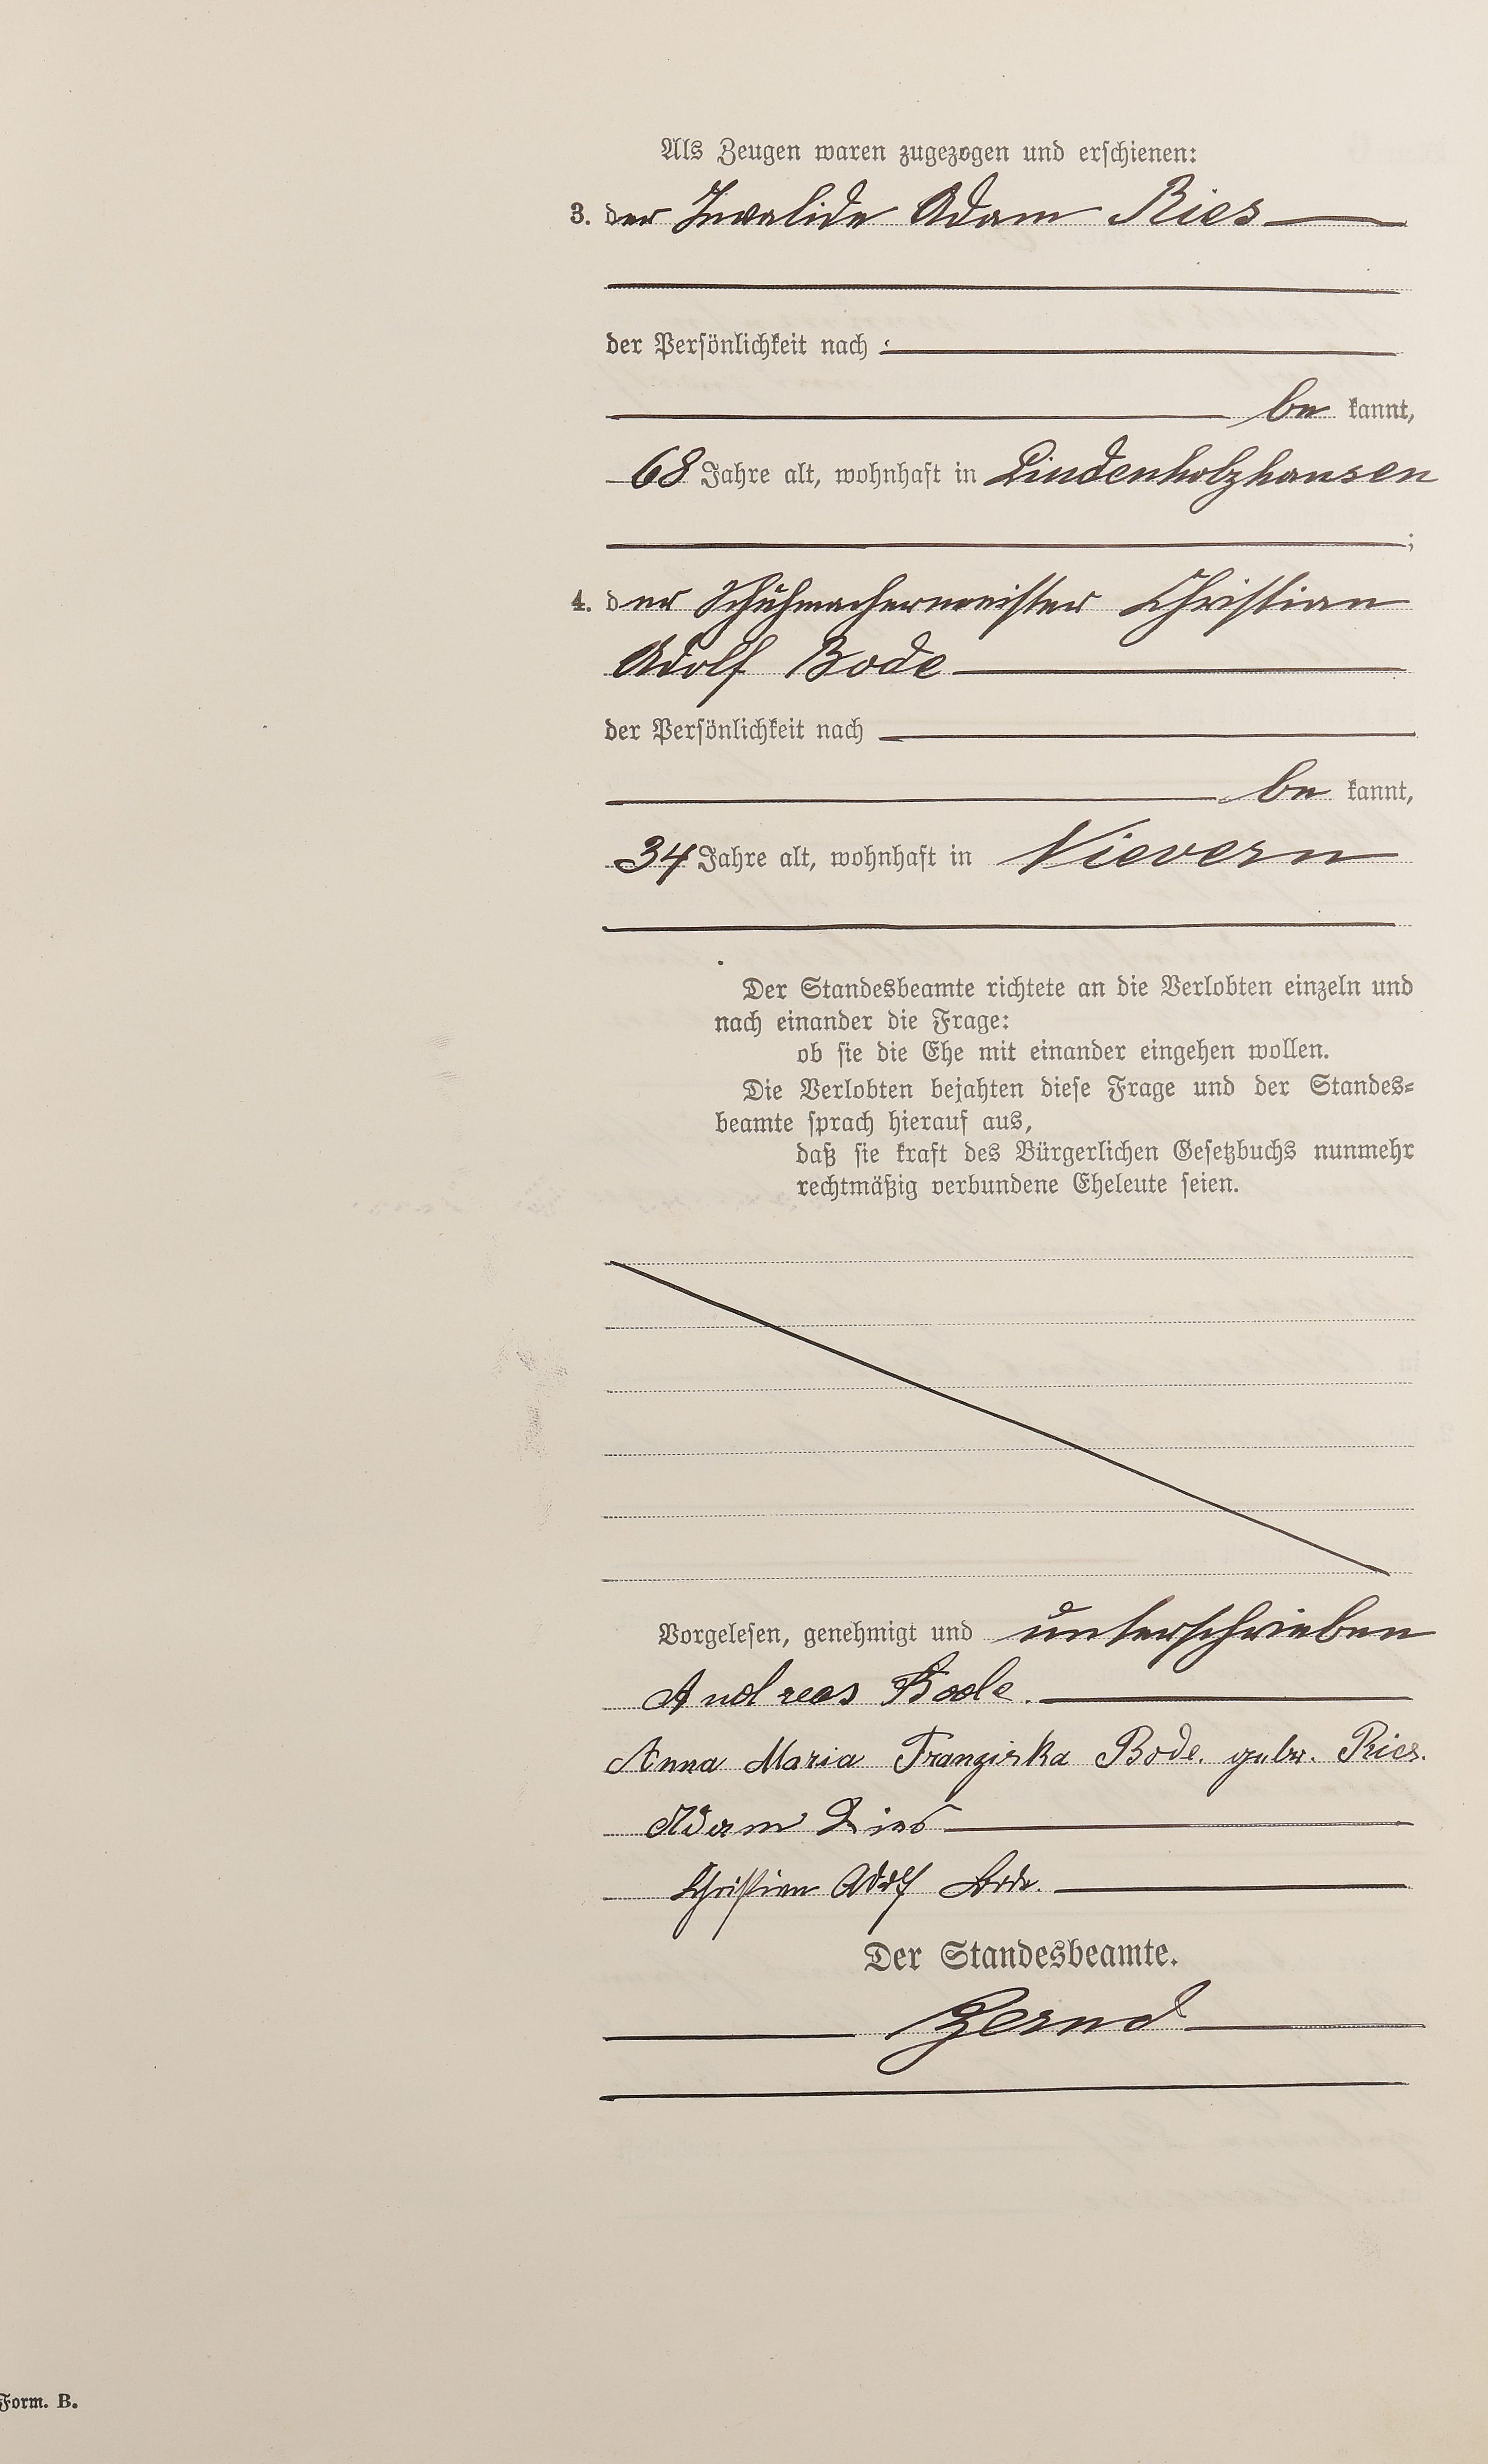 Als Zeugen waren zugezogen und erschienen:
3. der Invalide Adam Ries
der Persönlichkeit nach
be kannt,
68 Jahre alt, wohnhaft in Lindenholzhausen
;
4. der Schuhmachermeister Christian
Adolf Bode
der Persönlichkeit nach
be kannt,
34 Jahre alt, wohnhaft in Nievern
Der Standesbeamte richtete an die Verlobten einzeln und
nach einander die Frage:
ob sie die Ehe mit einander eingehen wollen.
Die Verlobten bejahten diese Frage und der Standes-
beamte sprach hierauf aus,
daß sie kraft des Bürgerlichen Gesetzbuchs nunmehr
rechtmäßig verbundene Eheleute seien.
Vorgelesen, genehmigt und unterschrieben
Andreas Bode.
Anna Maria Franziska Bode. gebor. Ries.
Adam Ries
Christian Adolf Bode.
Der Standesbeamte.
Zernd
Form. B.